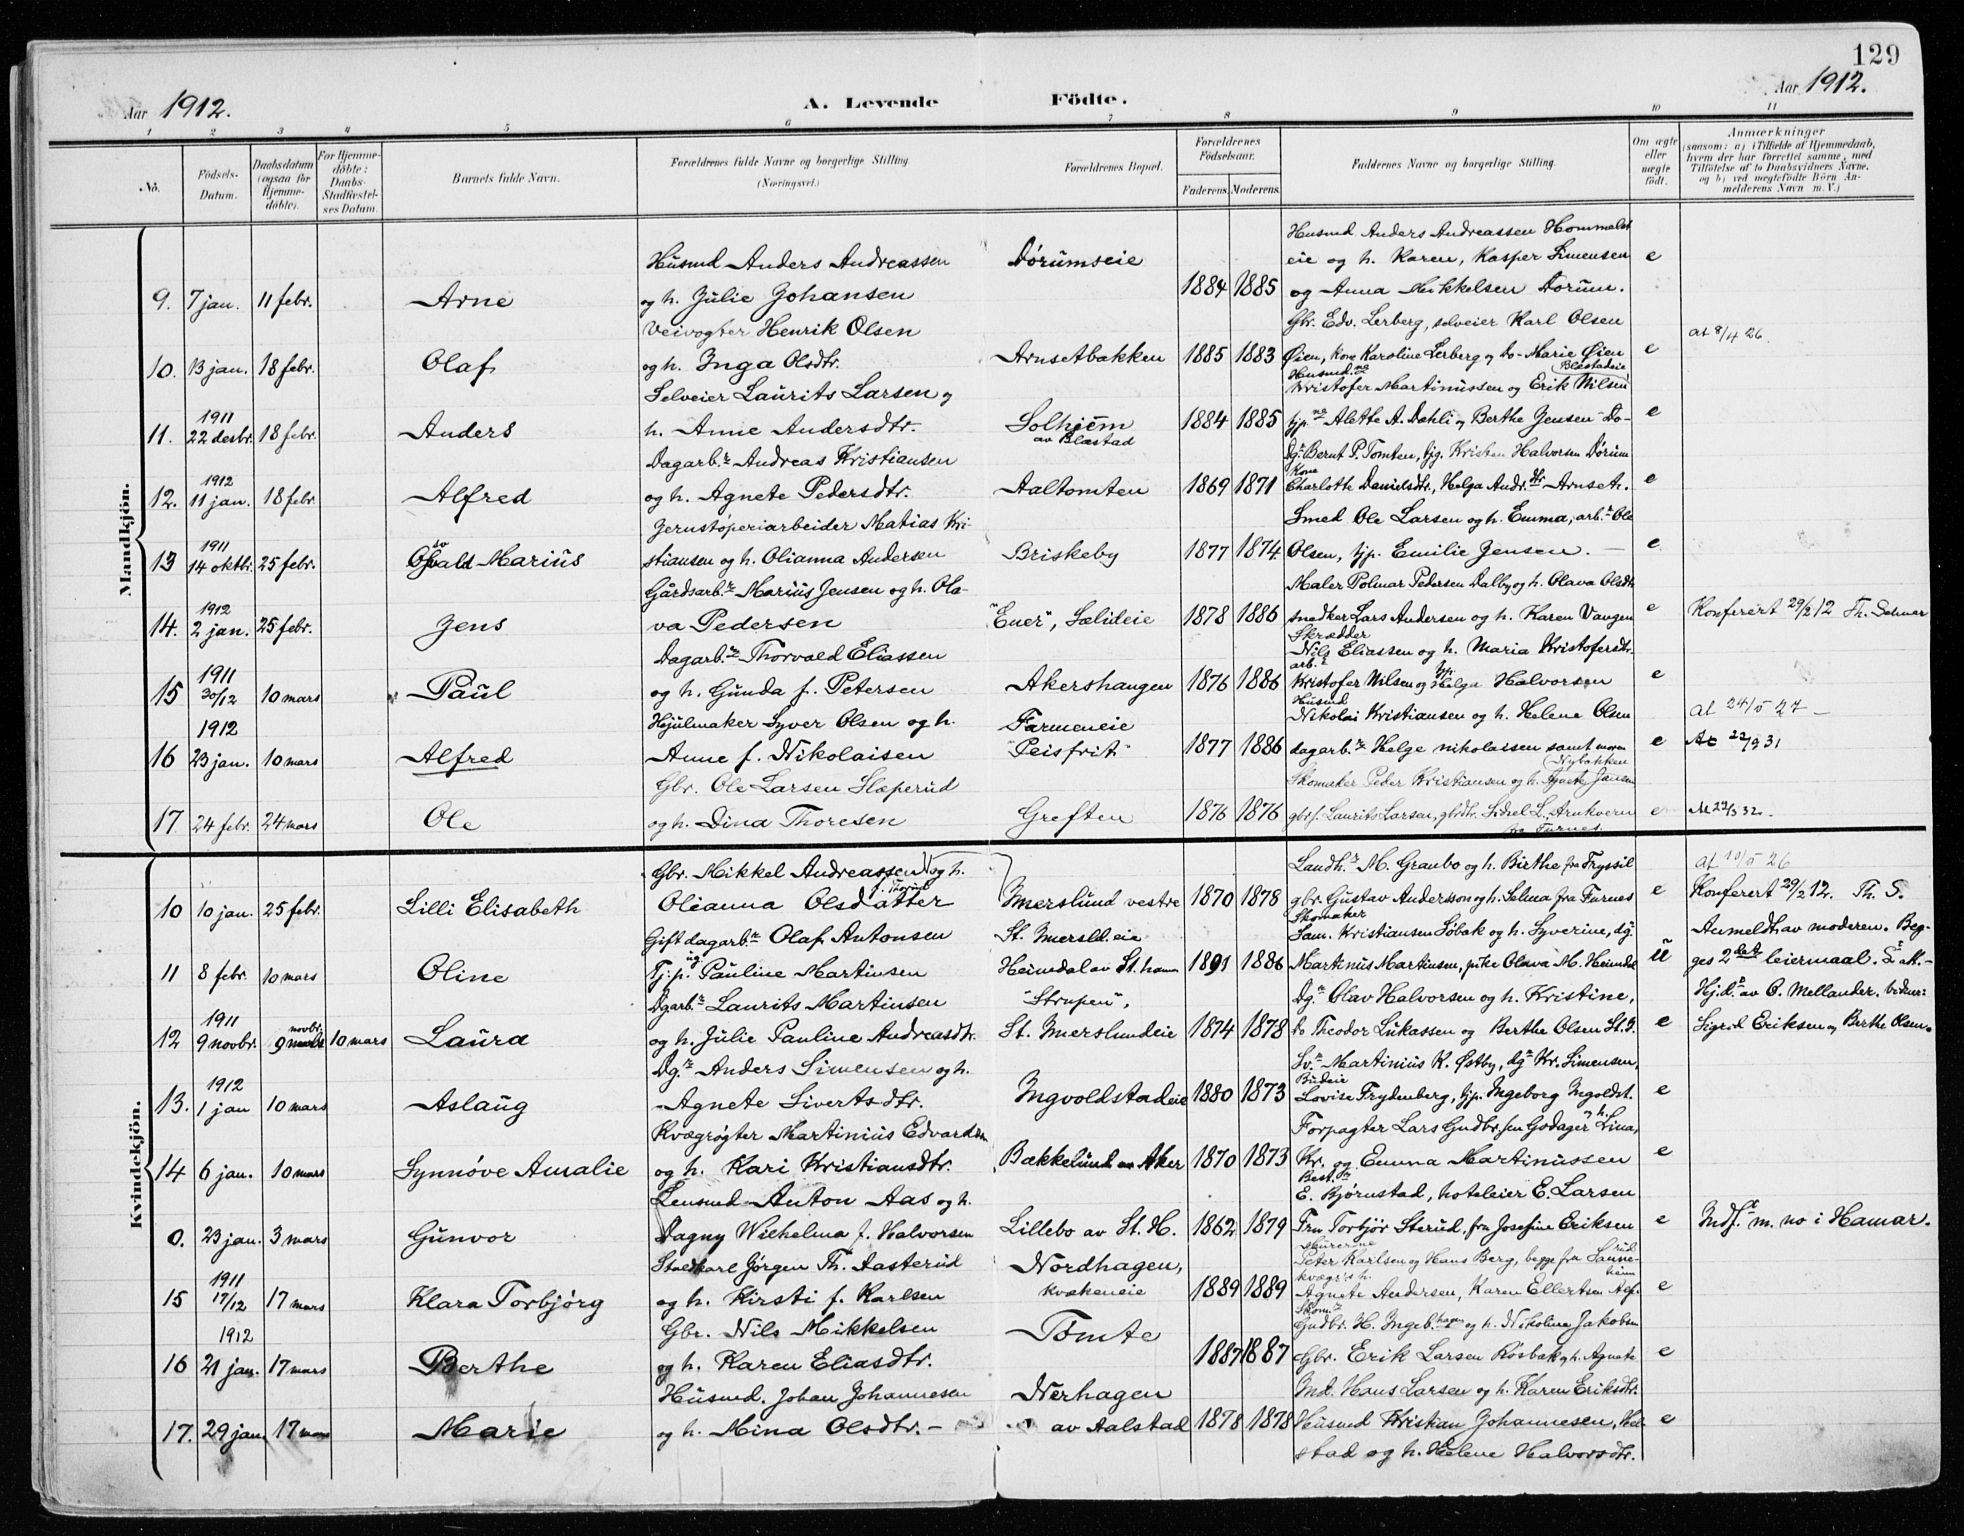 129
Aar 1912. A. Levende Födte. Aar 1912.
1 2 3 4 5 6 7 8 9 10 11
No.
Födsels-Datum.
Daabsdatum (ogsaa for Hjemme-döbte).
For Hjemme-döbte: Daabs-Stadfæstel-ses Datum.
Barnets fulde Navn.
Forældrenes fulde Navne og borgerlige Stilling.
(Næringsvei.)
Forældrenes Bopæl.
Forældrenes Födselsaar.
Faderens. Moderens.
Faddernes Navne og borgerlige Stilling.
Om ægte eller uægte födt.
Anmærkninger
(saasom: a) i Tilfælde af Hjemmedaab, hvem der har forrettet samme, med Tilföielse af to Daabsvidners Navne, og b) ved uægtefödte Börn An-melderens Navn m. V.)
Mandkjön.
Husmd Anders Andreassen Hommelst
Husmd Anders Andreassen Dórumseie eie og h. Karen, Kasper Simensen e
9. 7 jan. 11 febr. Arne og h. Julie Johansen 1884 1885 og Anna Mikkelsen Dorum.
Veivogter Henrik Olsen Gbr. Edv. Lerberg, selveier Karl Olsen at 8/4 26.
10. 13 jan. 18 febr. Olaf og h. Inga Olsdtr. Arnsetbakken 1885 1883 Øien, kone Karoline Lerberg og do- Marie Øien e
Selveier Laurits Larsen og Kristofer Martinussen og Erik Nilsen Blæstadeie
1911
11. 22 desbr. 18 febr. Anders h. Anne Andersdtr. Solhjem av Blæstad 1884 1885 tjp. Alette A. Dæhli og Berthe Jensen Do- e
Dagarb.r Andreas Kristiansen Dg. Bernt P. Tomten, tjg. Kristen Halvorsen Dórum
1912
12. 11 jan. 18 febr. Alfred og h. Agnete Pedersdtr. Aaltomten 1869 1871 Kone Charlotte Danielsdtr., Helga Andr.dtr Arnset. e
Jernstöperiarbeider Matias Kri- Smed Ole Larsen og h. Emma, arb.r Ole
1911
13 14 oktbr. 25 febr. Osvald Marius stiansen og h. Olianna Andersen Briskeby 1877 1874 Olsen, tjp. Emilie Jensen. e
Gårdsarb.r Marius Jensen og h. Ola- Maler Polmar Pedersen Dalby og h. Olava Olsdtr
1912
14. 2 jan. 25 febr. Jens va Pedersen "Ener", Sælideie 1878 1886 snedker Lars Andersen og h. Karen Vangen e Konferert 29/2 12 Th. Selmer
Dagarb.r Thorvald Eliassen Skrædder Nils Eliassen og h. Maria Kristofersdtr.
1911
15 30/12 10 mars Paul og h. Gunda f. Petersen Akershangen 1876 1886 arb.r Kristofer Nilsen og tjp. Helga Halvorsen e
Hjulmaker Syver Olsen og h. Farmeneie Husmd Nikolai Kristiansen og h. Helene Olsen at 24/5 27 –
1912
16 23 jan. 10 mars Alfred Anne f. Nikolaisen "Peisfrit" 1877 1886 dagarb.r Helge nikolaisen samt moren e At 22/9 31
Gbr. Ole Larsen Slæperud Skomaker Peder Kristiansen og h. Agnete Jansen Nybakken
17 24 febr. 24 mars Ole og h. Dina Thoresen Greften 1876 1876 gbrs. Laurits Larsen, gbrdtr. Sidsel L. Arnkvern fra Furnes. e At 22/3 32.
Kvindekjön.
Gbr. Mikkel Andreassen og h. Landh. M. Granbo og h. Birthe fra Trysil at 10/5 26
10 10 jan. 25 febr. Lilli Elisabeth Olianna Olsdatter Imerslund vestre 1870 1878 gbr. Gustav Andersson og h. Selma fra Furnes e Konferert 29/2 12. Th. S.
Gift dagarb.r Olaf Antonsen St. Imersld. eie Skomaker Sam. Kristiansen Söbak og h. Syverine, dg. Anmeldt av moderen. Beg-
11 8 febr. 10 mars Oline Tj.p. ug. Pauline Martinsen Heimdal av St. ham 1891 1886 Martinus Martinsen, pike Olava M. Heimdal u ges 2det leiermaal.
Dgarb.r Laurits Martinsen "Strupen", Dg. Olav Halvorsen og h. Kristine, Hj.d. av O. Mellander.
1911
12 9 novbr. 9 novbr. 10 mars Laura og h. Julie Pauline Andreasdtr. St. Imerslundeie 1874 1878 do Theodor Lukassen og Berthe Olsen St. I. e Sigrid Eriksen og Berthe Olsen.
Dg. Anders Simensen og h. Sv. Martinius K. Østby, dg. Kr. Simensen,
1912
13. 1 jan 10 mars Aslaug Agnete Sivertsdtr. Ingvoldstadeie 1880 1873 Budeie Lovise Frydenberg, tjp. Ingeborg Ingoldst. e
Kvægrøgter Martinius Edvardsen Forpagter Lars Gudbr.sen Godager h. Lina,
14 6 jan. 10 mars Synnöve Amalie og h. Kari Kristiansdtr. Bækkelund av Aker 1870 1873 Kr. og Emma Martinussen e
Lensmd Anton Aas og h. Best. E. Bjørnstad, hoteleier E. Larsen
0. 23 jan. 3 mars Gunvor Dagny Wilhelma f. Halvorsen Lillebo av St. H. 1862 1879 Fru Torbjör Sterud, fru Josefine Eriksen e Indf. m. no i Hamar.
Staldkarl Jørgen Th. Aasterud Nordhagen, Murerne Peter Karlsen og Hans Berg, begge fra Sanne-
1911
15 17/12 17 mars Klara Torbjørg og h. Kirsti f. Karlsen Kvækeneie 1889 1889 Agnete Andersen, Karen Ellertsen e
Gbr. Nils Mikkelsen Tomte Gudbr. H. Ingeb.hagen og h. Nikoline Jakobsen
1912
16 21 jan. 17 mars Berthe og h. Karen Eliasdtr. 1887 1887 Gbr. Erik Larsen Rösbak og h. Agnete e
Husmd. Johan Johannesen Nerhagen Ind. Hans Larsen og h. Karen Eriksdtr.
17. 29 jan. 17 mars Marie og h. Mina Olsdtr. – av Aalstad 1878 1878 Husmd Kristian Johannesen, e
stad og h. Helene Halvorsdtr.